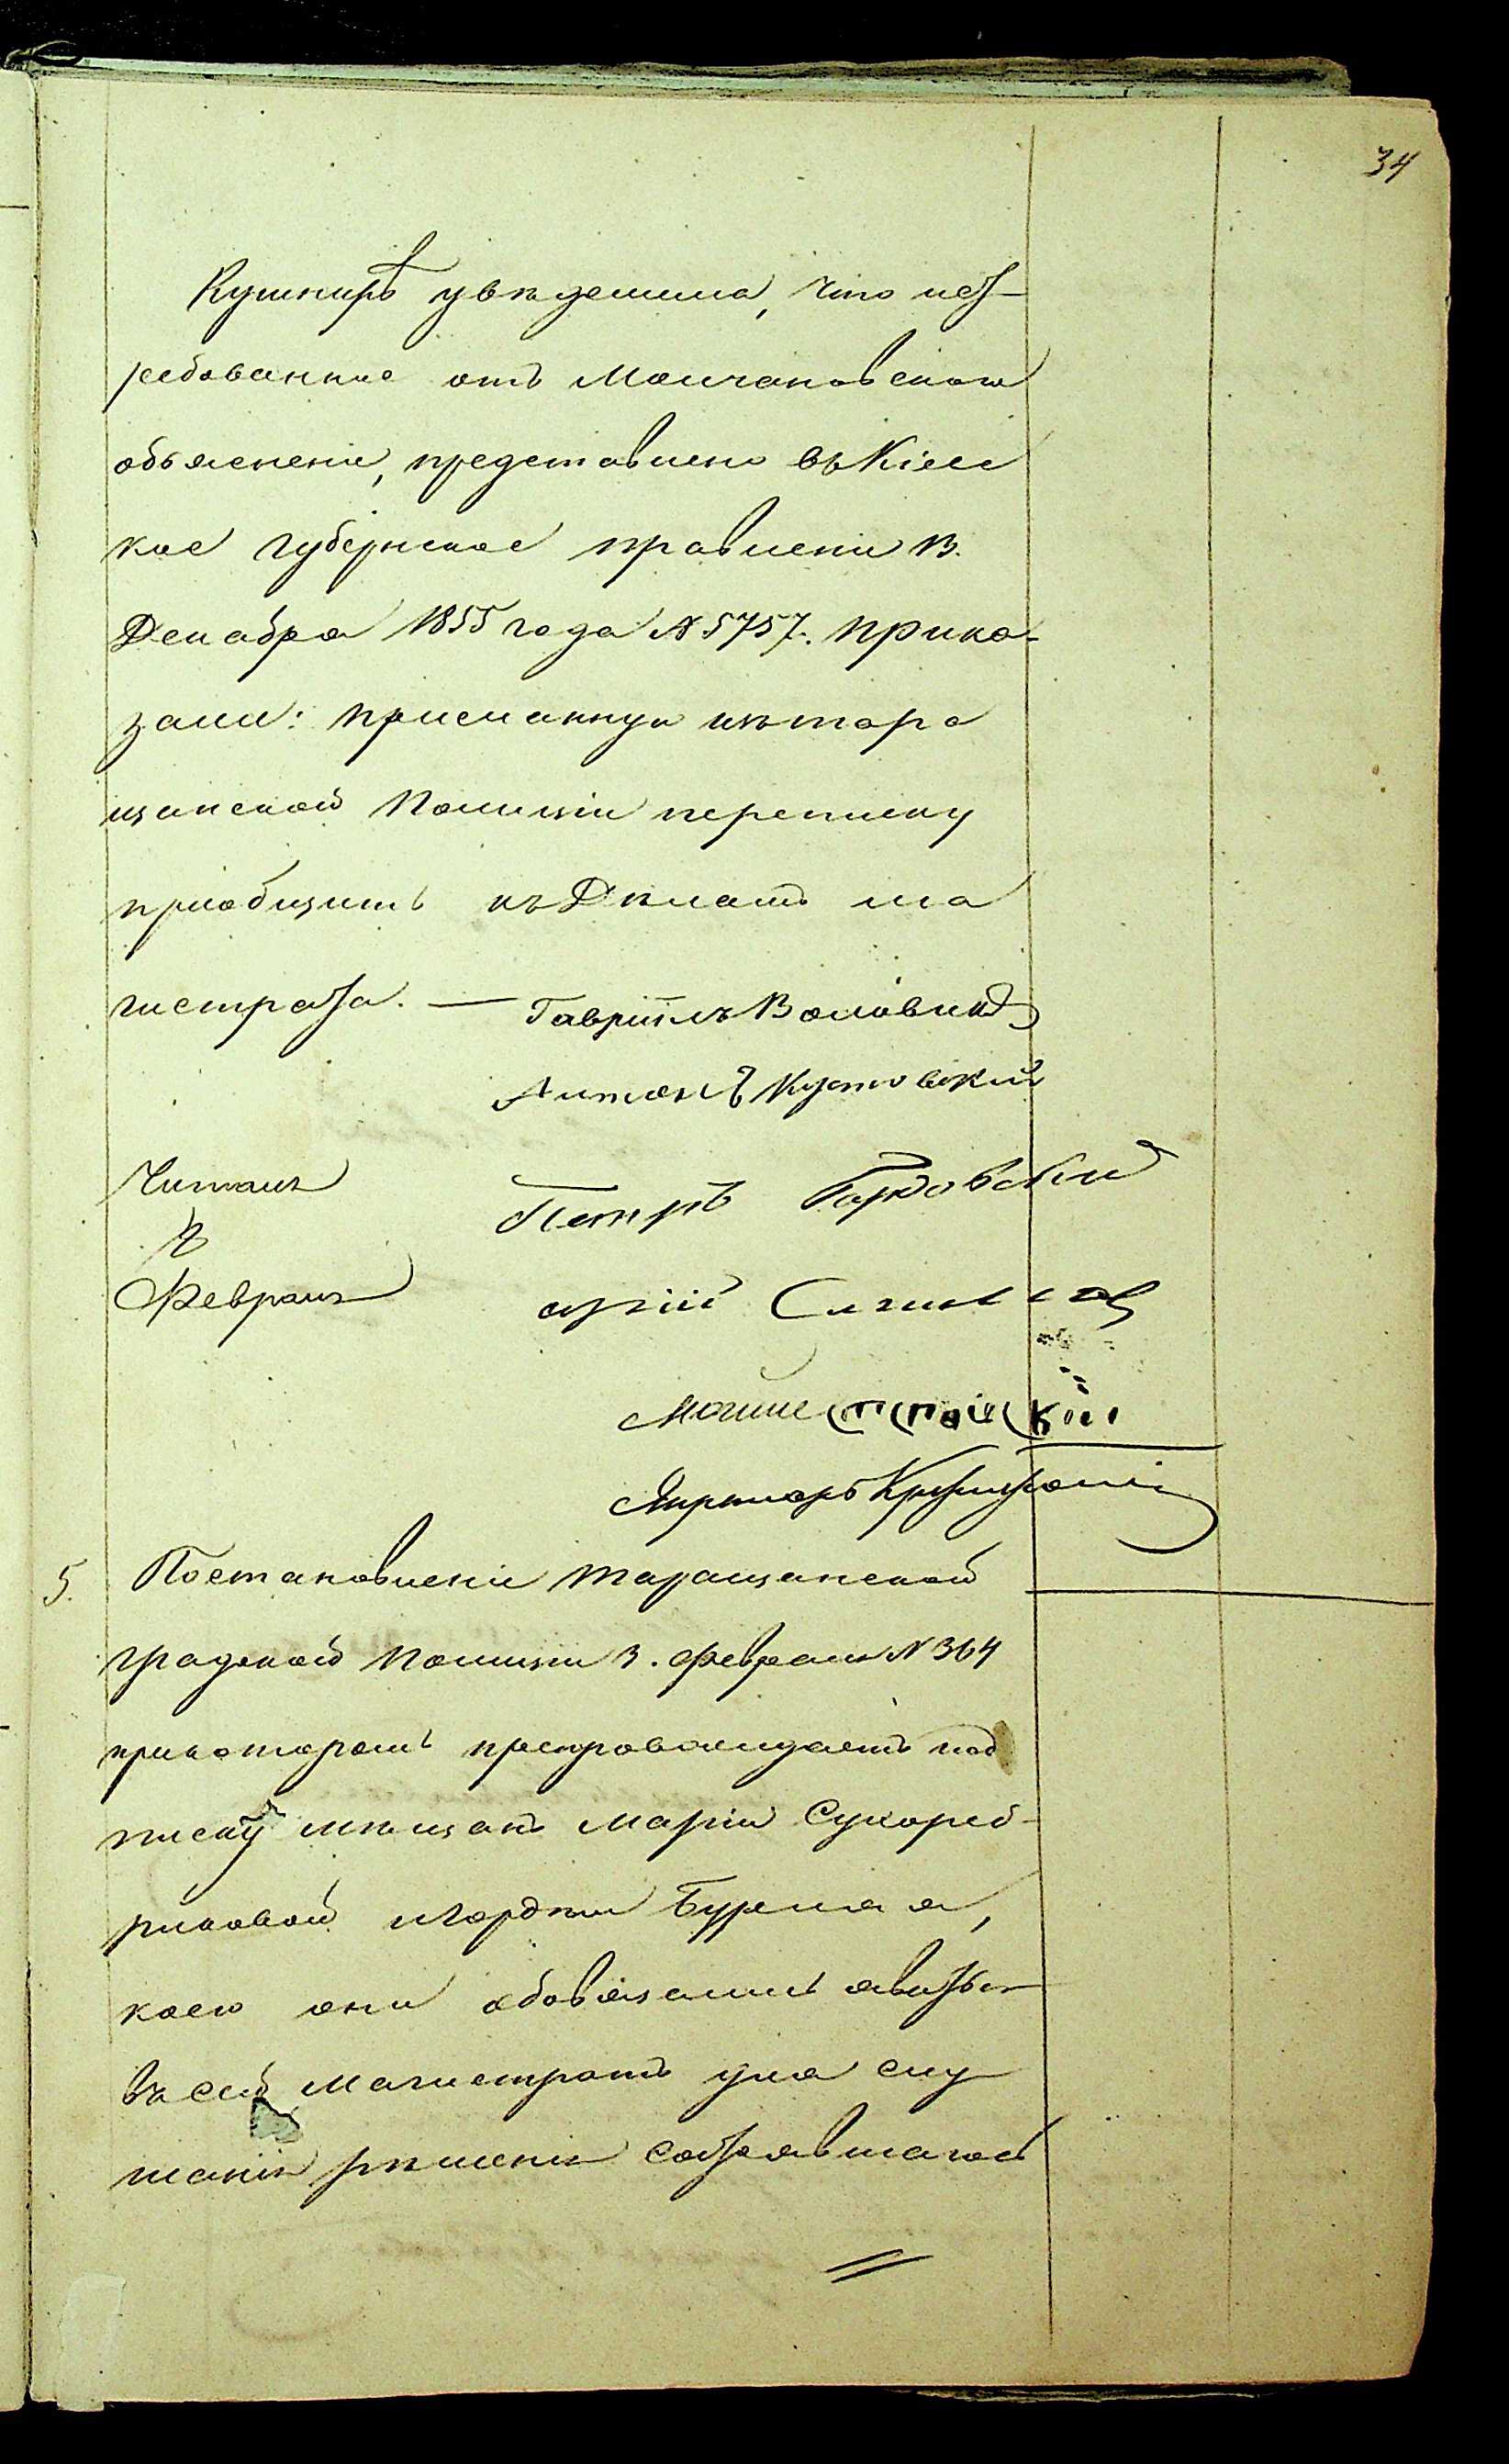 34
Кушниръ увѣдомила, что ист-
ребованное отъ Молчановскаго
объясненіе, представлено въ Кіев
кое губернское правленіе 13.
Декабря 1855 года № 5757. Прика-
зали: присланную изъ тара
щанской Полиціи переписку
пріобщить къ Дѣламъ ма
гистрата. — Гавріилъ Воловик
Антонъ Кутовскій
Читалъ
Петръ
Февраля
5. Постановленіе таращанской
градской Полиціи 3. февраля № 364
при которомъ препровождаетъ под
писку мѣщанъ Маріи Сухореб-
риковой и Гордѣя Бурлая,
коею они обовязались явиться
въ сей Магистратъ для слу
шанія рѣшенія состоявшагось